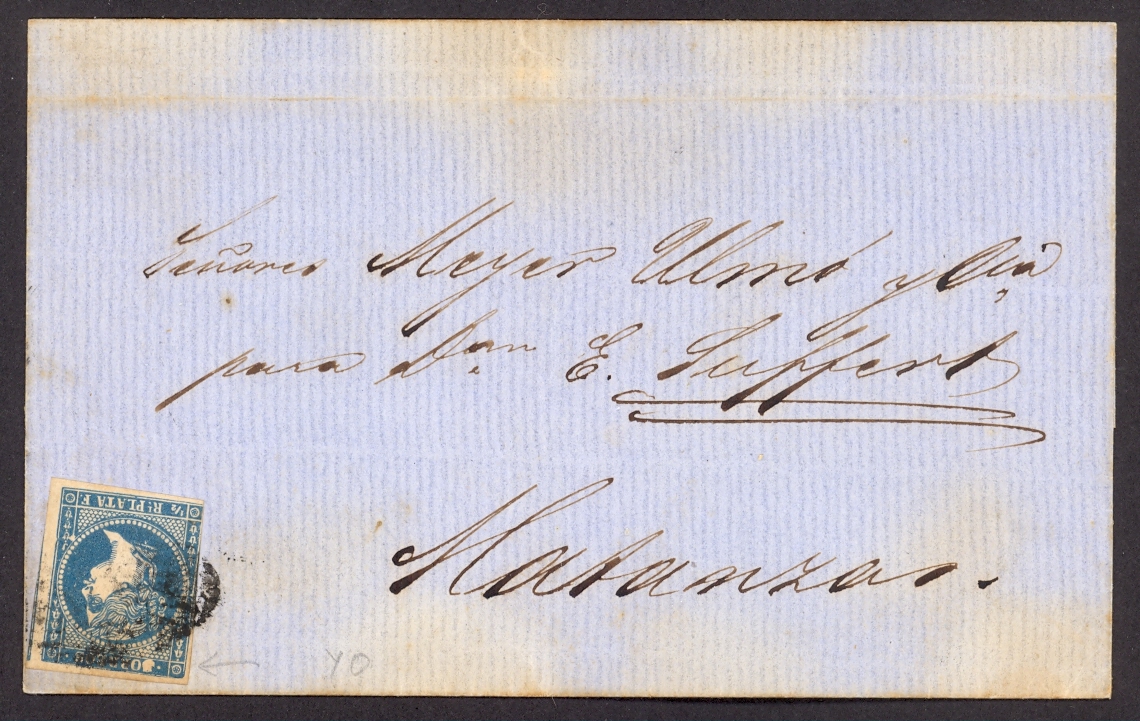 Señores Meyer Ulmo y Cia
para Dn E. Seiffert
Matanzas.
½ Rl PLATA F.
YO